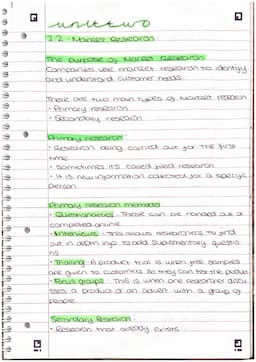 unit two
2.2 - Market Research
The purpose of Market Research
Companies use market research to identify
and understand customer needs.
There are two main types of Market reserch
• Primary research
• Secondary research
Primary research:
• Research being carried out for the first
time
• Sometimes it's called field research
• It is new information collected for a specific
person
Primary research methods
• Questionnaires - These can be handed out or
completed online
• Interviews - This allows researchers to find
out in depth ings to add suplmentary questio
ns
• Trialling - A product trial is when free samples
are given to customers so they can for the product
• Focus groups - This is when one researcher discu
sses a product or an advert with a group of
people
Secondary Research
• Research that already exists